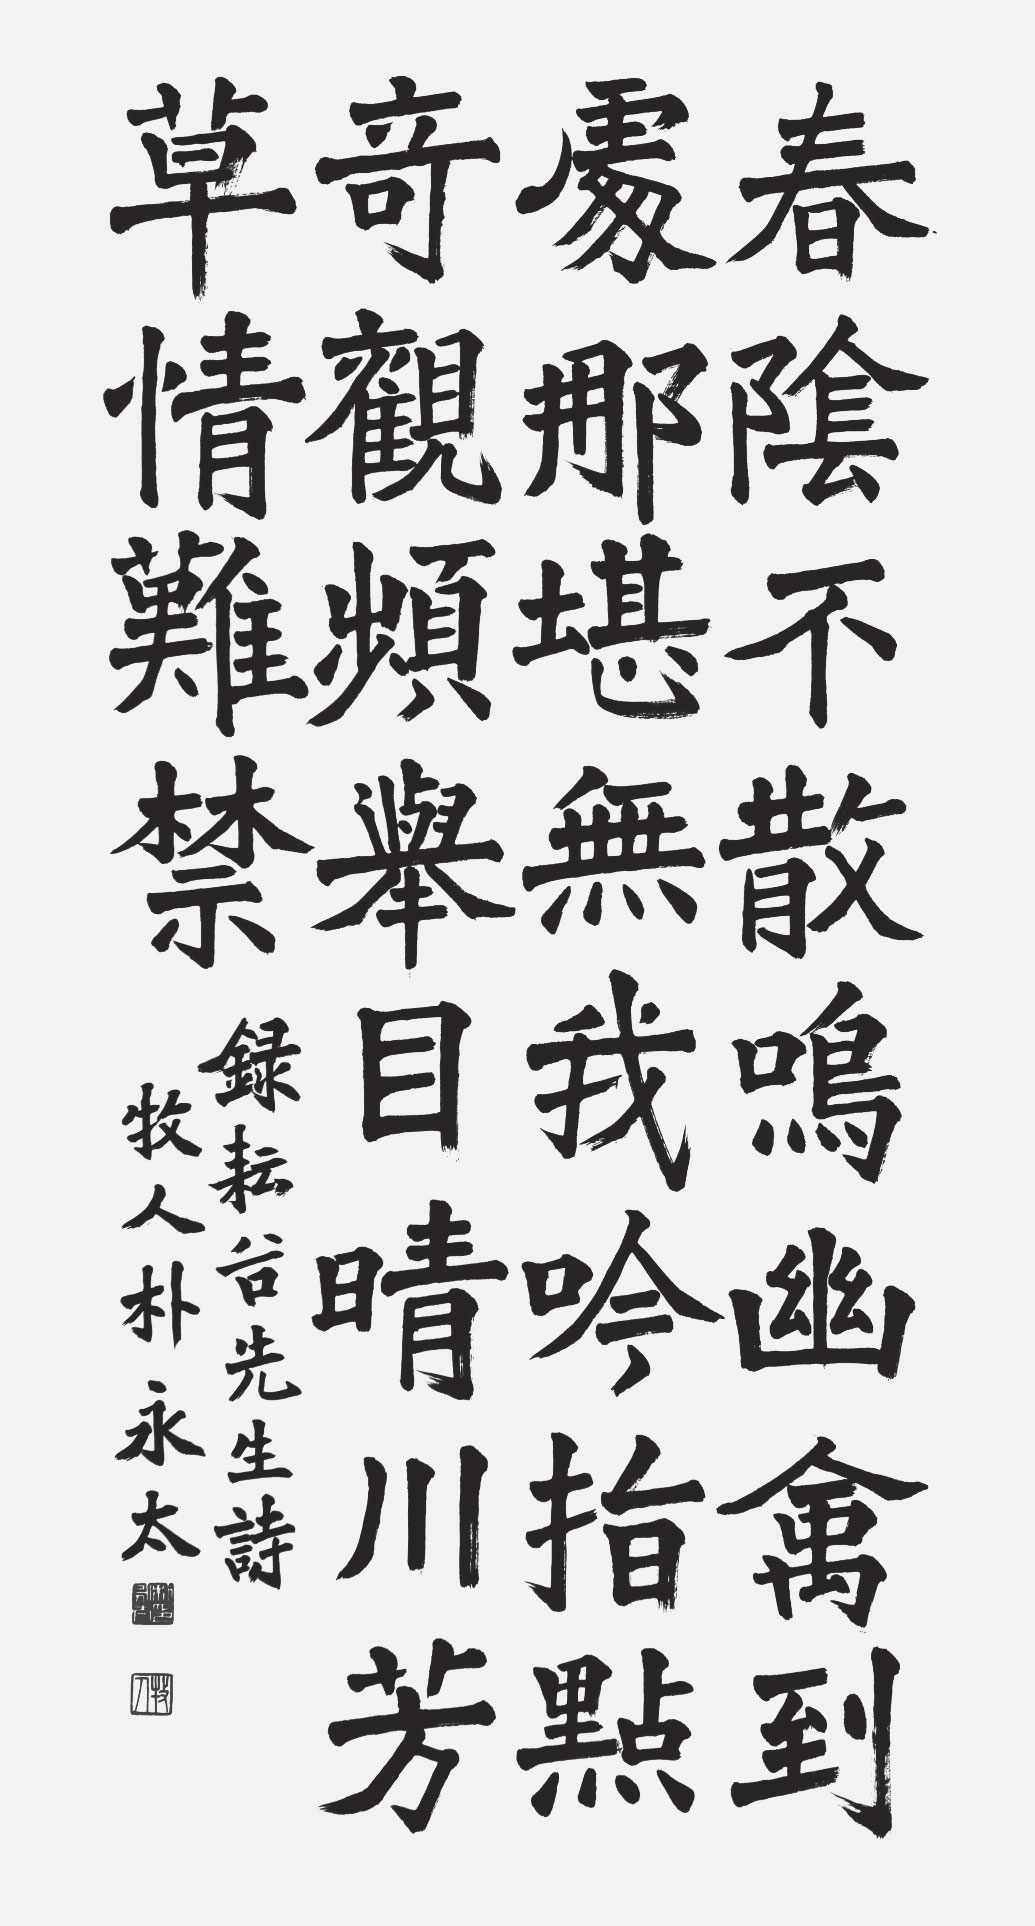 春陰不散鳴幽禽到
處那堪無我吟指點
奇觀頻舉目晴川芳
草情難禁
録耘谷先生詩
牧人朴永太
牧人